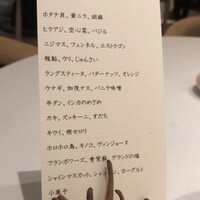 ホタテ貝、黄ニラ、胡麻
ヒウアジ、空心菜、バジル
ニジマス、フェンネル、エストラゴン
稚鮎、ウリ、じゅんさい
ラングスティーヌ、バターナッツ、オレンジ
ウナギ、加茂ナス、バニラ味噌
牛タン、インカのめざめ
カキ、ズッキーニ、すだち
キウイ、根セロリ
ホロホロ鳥、キノコ、ヴァンジョーヌ
フランボワーズ、青紫蘇、ゲランドの塩
シャインマスカット、ヨーグルト
小菓子